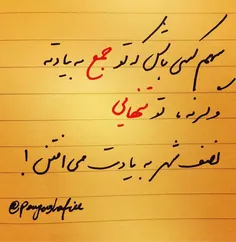 سهم کسی باش که تو جمع به یادته
وگرنه، تو تنهایی
نصف شهر به یادت می افتن!